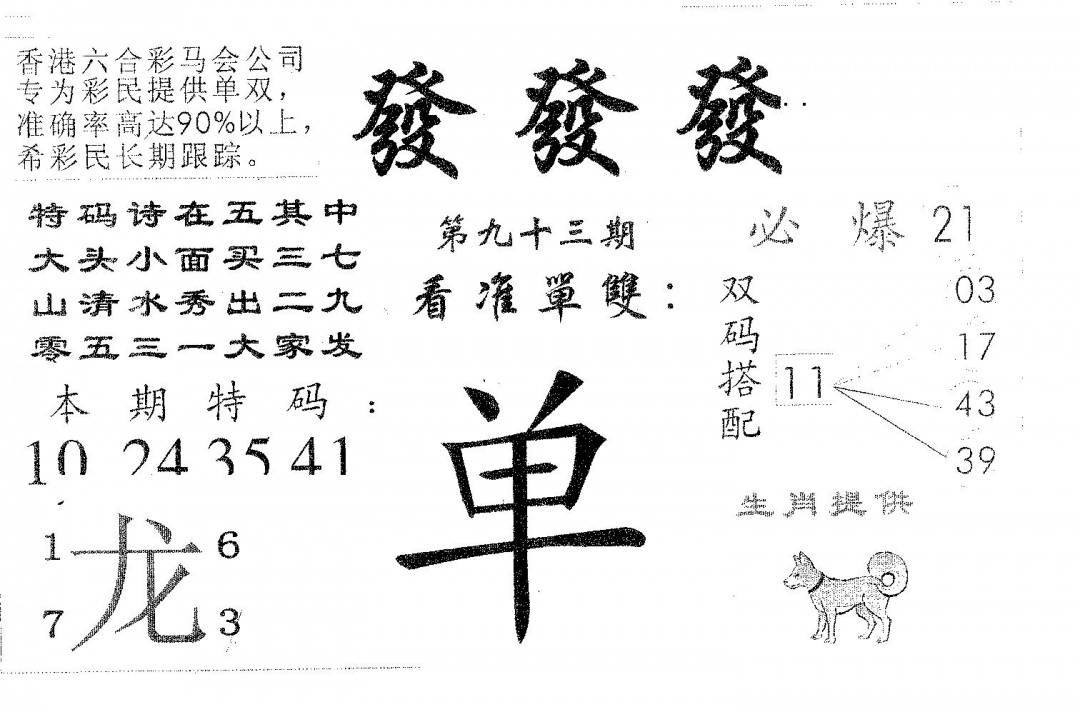 香港六合彩马会公司
专为彩民提供单双，
准确率高达90%以上，
希彩民长期跟踪。
發 發 發
特码诗在五其中
大头小面买三七
山清水秀出二九
零五三一大家发
本期特码：
10 24 35 41
1 龙 6
7 3
第九十三期
看准單雙：
单
必爆 21
双码搭配
11
03
17
43
39
生肖提供